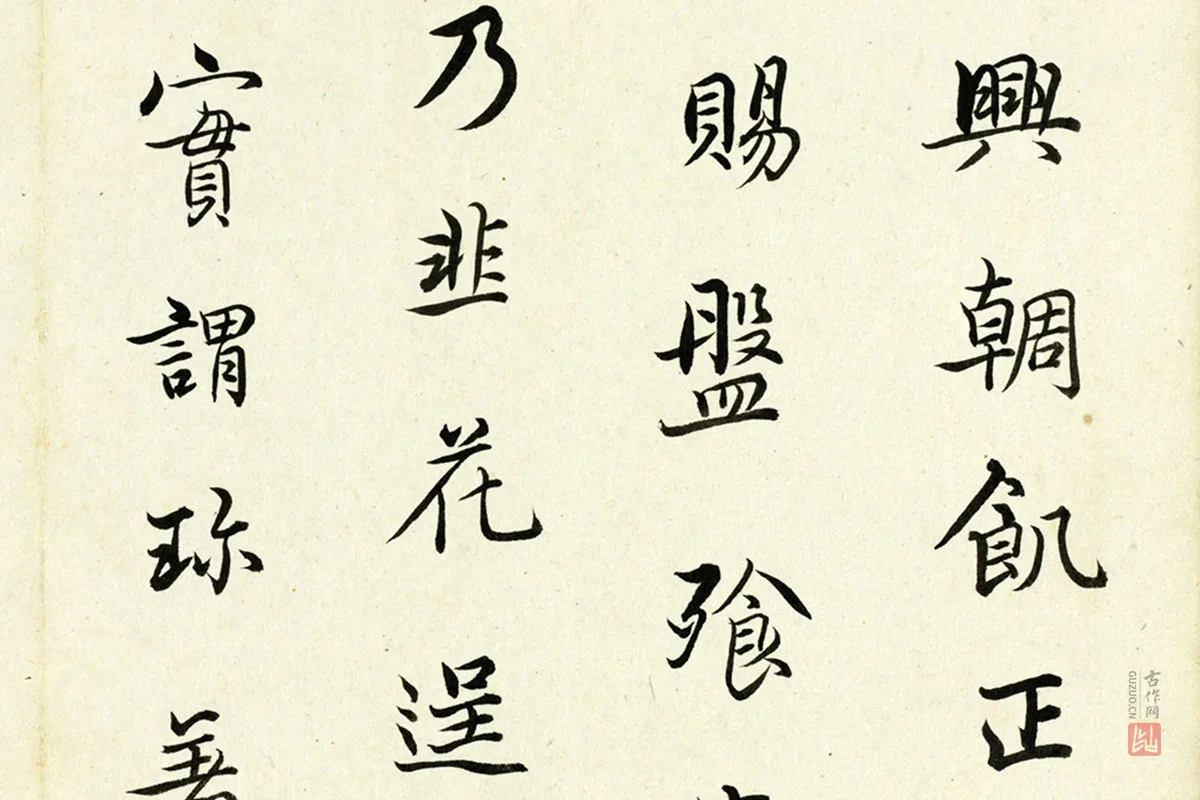 興輖飢正
賜盤飱
乃韭花逞
實謂珎羞
古作网
GUZUO.CN